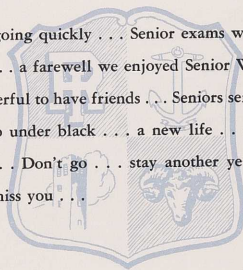 going quickly . . . Senior exams w
. . a farewell we enjoyed Senior W
erful to have friends . . . Seniors se
o under black . . . a new life . .
. . Don't go . . . stay another ye
miss you . . .